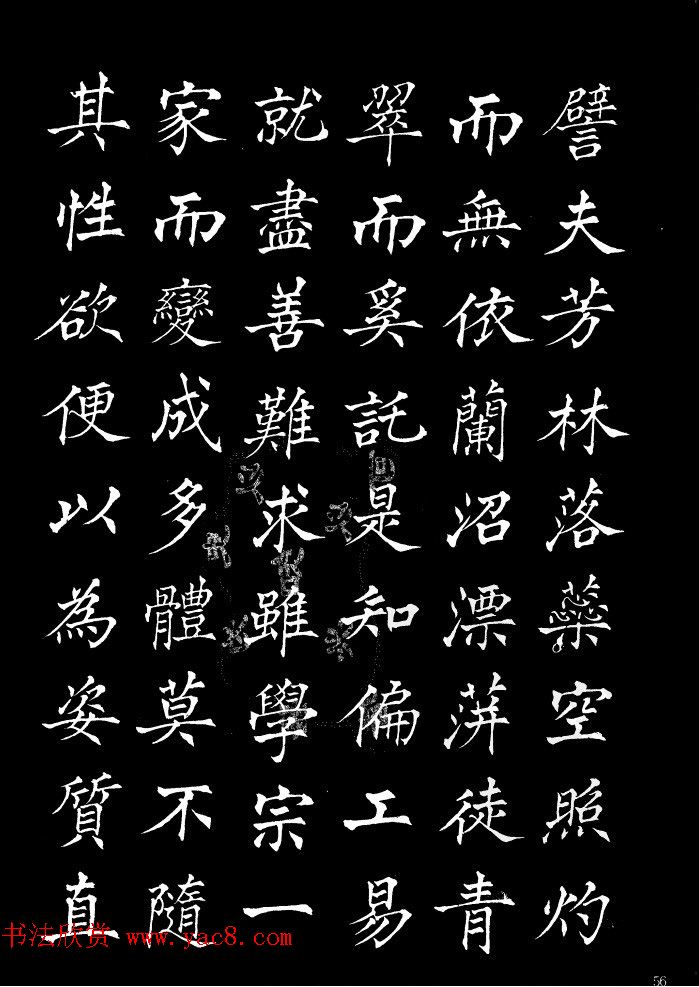 譬夫芳林落蘂空照灼
而無依蘭沼漂蓱徒青
翠而奚託是知偏工易
就盡善難求雖學宗一
家而變成多體莫不隨
其性欲便以為姿質直
书法欣赏 www.yac8.com
56